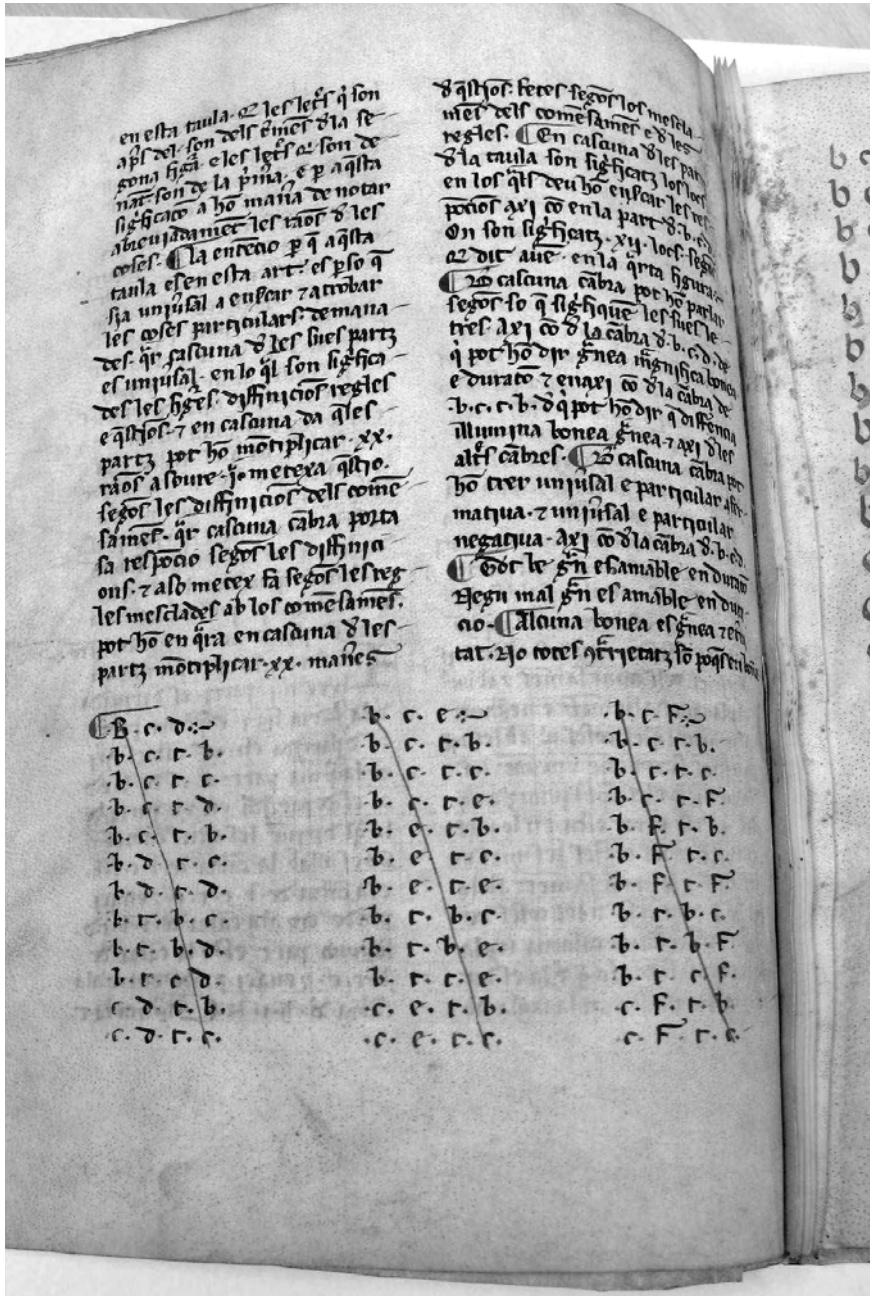 en esta taula · Et les letrˢ q̇ son
apˢ del · son dels cōmēs d̄la se
gona figᵃ · e les letrˢ · son de
nāt · son de la p̄mᵃ · e per aq̄sta
significaco a hō manᵃ de notar
abreviadamēt les raōs d̄ les
coses · La entēcio per q̄ aq̄sta
taula es en esta art · es per so q̄
sia univ̄sal a encercar ⁊ a trobar
les coses particulars · demana
des · qᵃr cascuna d̄ les sues partz
es univ̄sal · en lo qᵃl son signifca
des les figˢ · diffinicios regles
e q̄stios · ⁊ en cascuna da q̄les
partz pot hō mōtiplicar · xx ·
raōs a soure · j · metexa q̄stio ·
segōs les diffinicios dels comē
samēs · qᵃr cascuna cābra porta
sa respōcio segōs les diffinici
ons · ⁊ aso metex fa segōs les reg
les mesclades ab los comēsamēs ·
pot hō en qᵃra en cascuna d̄ les
partz mōtiplicar · xx · manˢ
d̄ q̄stios · fetes segōs los mescla
mēs dels comēsamēs e d̄ les
regles · En cascuna d̄ les partz
d̄ la taula son sigificatz los locs
en los qᵃls deu hō encercar les res
pōcios axi cō en la part d̄ · b · c · d ·
On son sigificatz · xij · locs · segōs
dit avē · en la qᵃrta figura
De cascuna cābra pot hō parlar
segōs so q̄ sigifiquē les sues le
tres · axi cō d̄ la cābra d̄ · b · c · d · de
q̇ pot hō dir gᵃnea mᵃgnifica bonea
e duraco ⁊ enaxi cō d̄ la cābra de
· b · c · t · b · d̄ q̇ pot hō dir q̄ differēcia
illumina bonea gᵃnea · ⁊ axi d̄ les
altrˢ cābres · De cascuna cābra pot
hō trer univ̄sal e particular affir
mativa · ⁊ univ̄sal e particular
negativa · axi cō d̄ la cābra d̄ · b · c · d ·
Tot be gᵃn es amable en duraco
Negu mal gᵃn es amable en dura
cio · Alcuna bonea es gᵃnea ⁊ et̄ni
tat · No totes ꝯtᵃrietatz
B · c · d ·
· b · c · t · b ·
· b · c · t · c ·
· b · c · t · d ·
· b · c · t · b ·
· b · d · t · c ·
· b · d · t · d ·
· b · t · b · c ·
· b · t · b · d ·
· b · t · c · d ·
· c · d · t · b ·
· c · d · t · c ·
b · c · e ·
· b · c · t · b ·
· b · c · t · c ·
· b · c · t · e ·
· b · e · t · b ·
· b · e · t · c ·
· b · e · t · e ·
· b · t · b · c ·
· b · t · b · e ·
· b · t · c · e ·
· c · e · t · b ·
· c · e · t · c ·
· b · c · F ·
· b · c · t · b ·
· b · c · t · c ·
· b · c · t · F ·
· b · F · t · b ·
· b · F · t · c ·
· b · F · t · F ·
· b · t · b · c ·
· b · t · b · F ·
· b · t · c · F ·
· c · F · t · b ·
· c · F · t · c ·